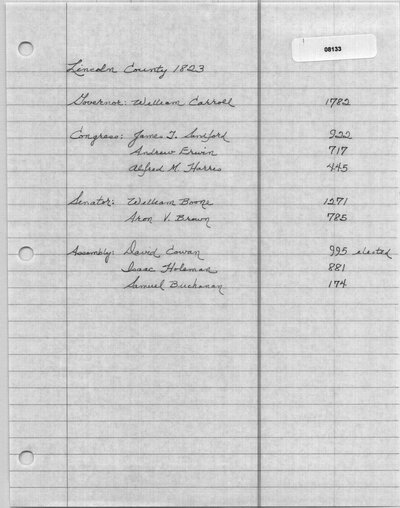 08133
Lincoln County 1823
Governor: William Carroll 1782
Congress: James T. Sandford 922
Andrew Erwin 717
Alfred M. Harris 445
Senator: William Boone 1271
Aron V. Brown 785
Assembly: David Cowan 995 elected
Isaac Holeman 881
Samuel Buchanan 174